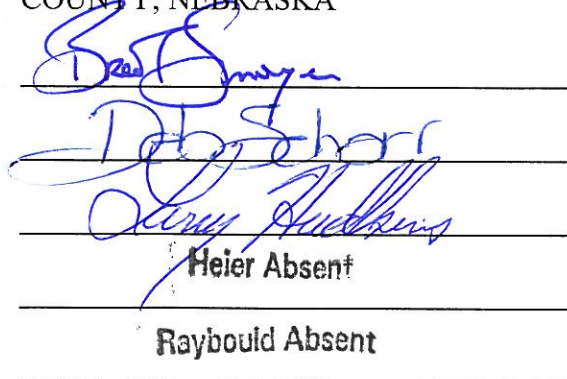 COUNTY, NEBRASKA
Deb Schorr
Larry Hudkins
Heier Absent
Raybould Absent